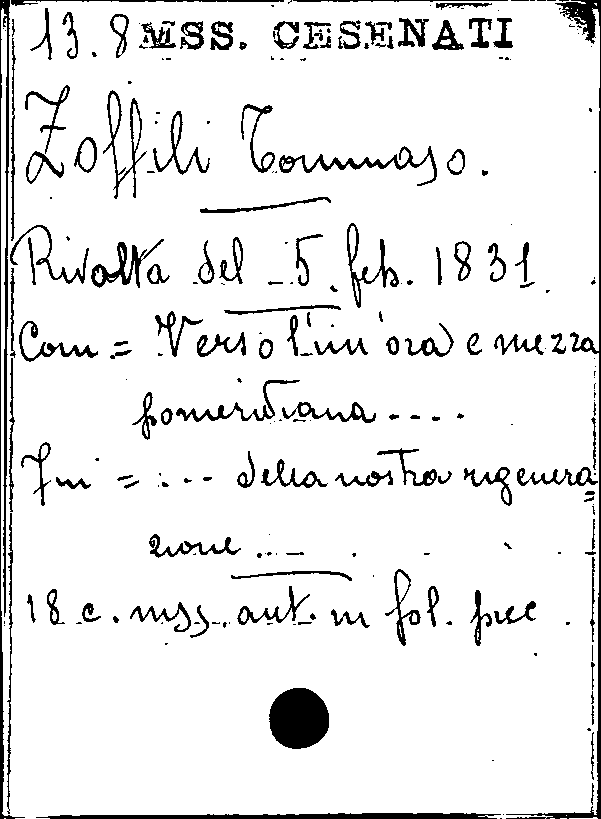 13.8 MSS. CESENATI
Zoffili Tommaso.
Rivolta del 5. feb. 1831.
Com = Verso l'un'ora e mezza
pomeridiana ....
Fin = ... della nostra rigenera
zione ...
18 c. mss. aut. in fol. picc.